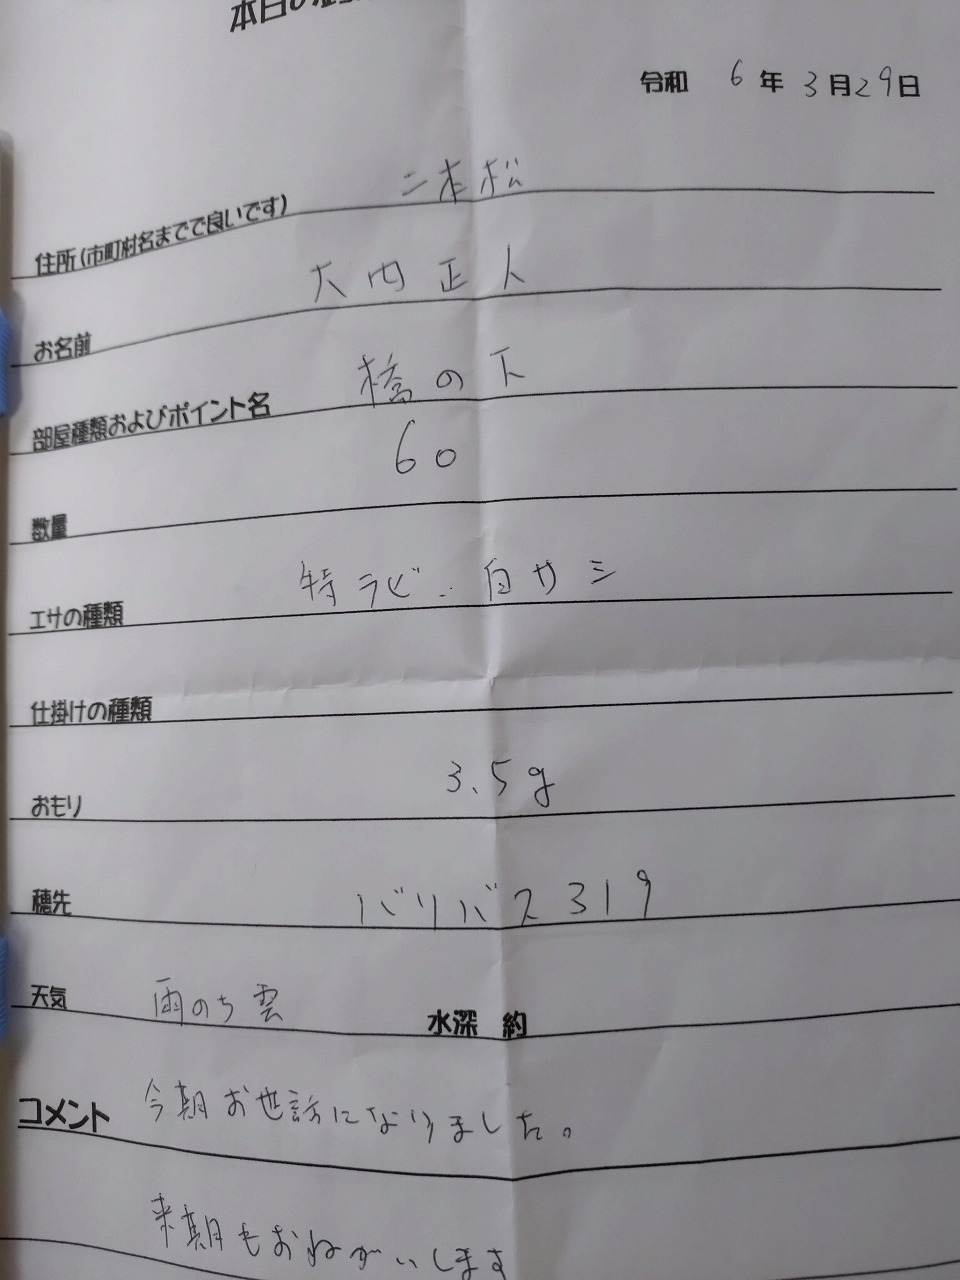 本日の
令和 6 年 3 月 29 日
住所(市町村名までで良いです) 二本松
お名前 大内正人
部屋種類およびポイント名 橋の下
数量 60
エサの種類 特ラビ 白サシ
仕掛けの種類
おもり 3.5g
穂先 バリバス319
天気 雨のち雲 水深 約
コメント 今期お世話になりました。
来期もおねがいします